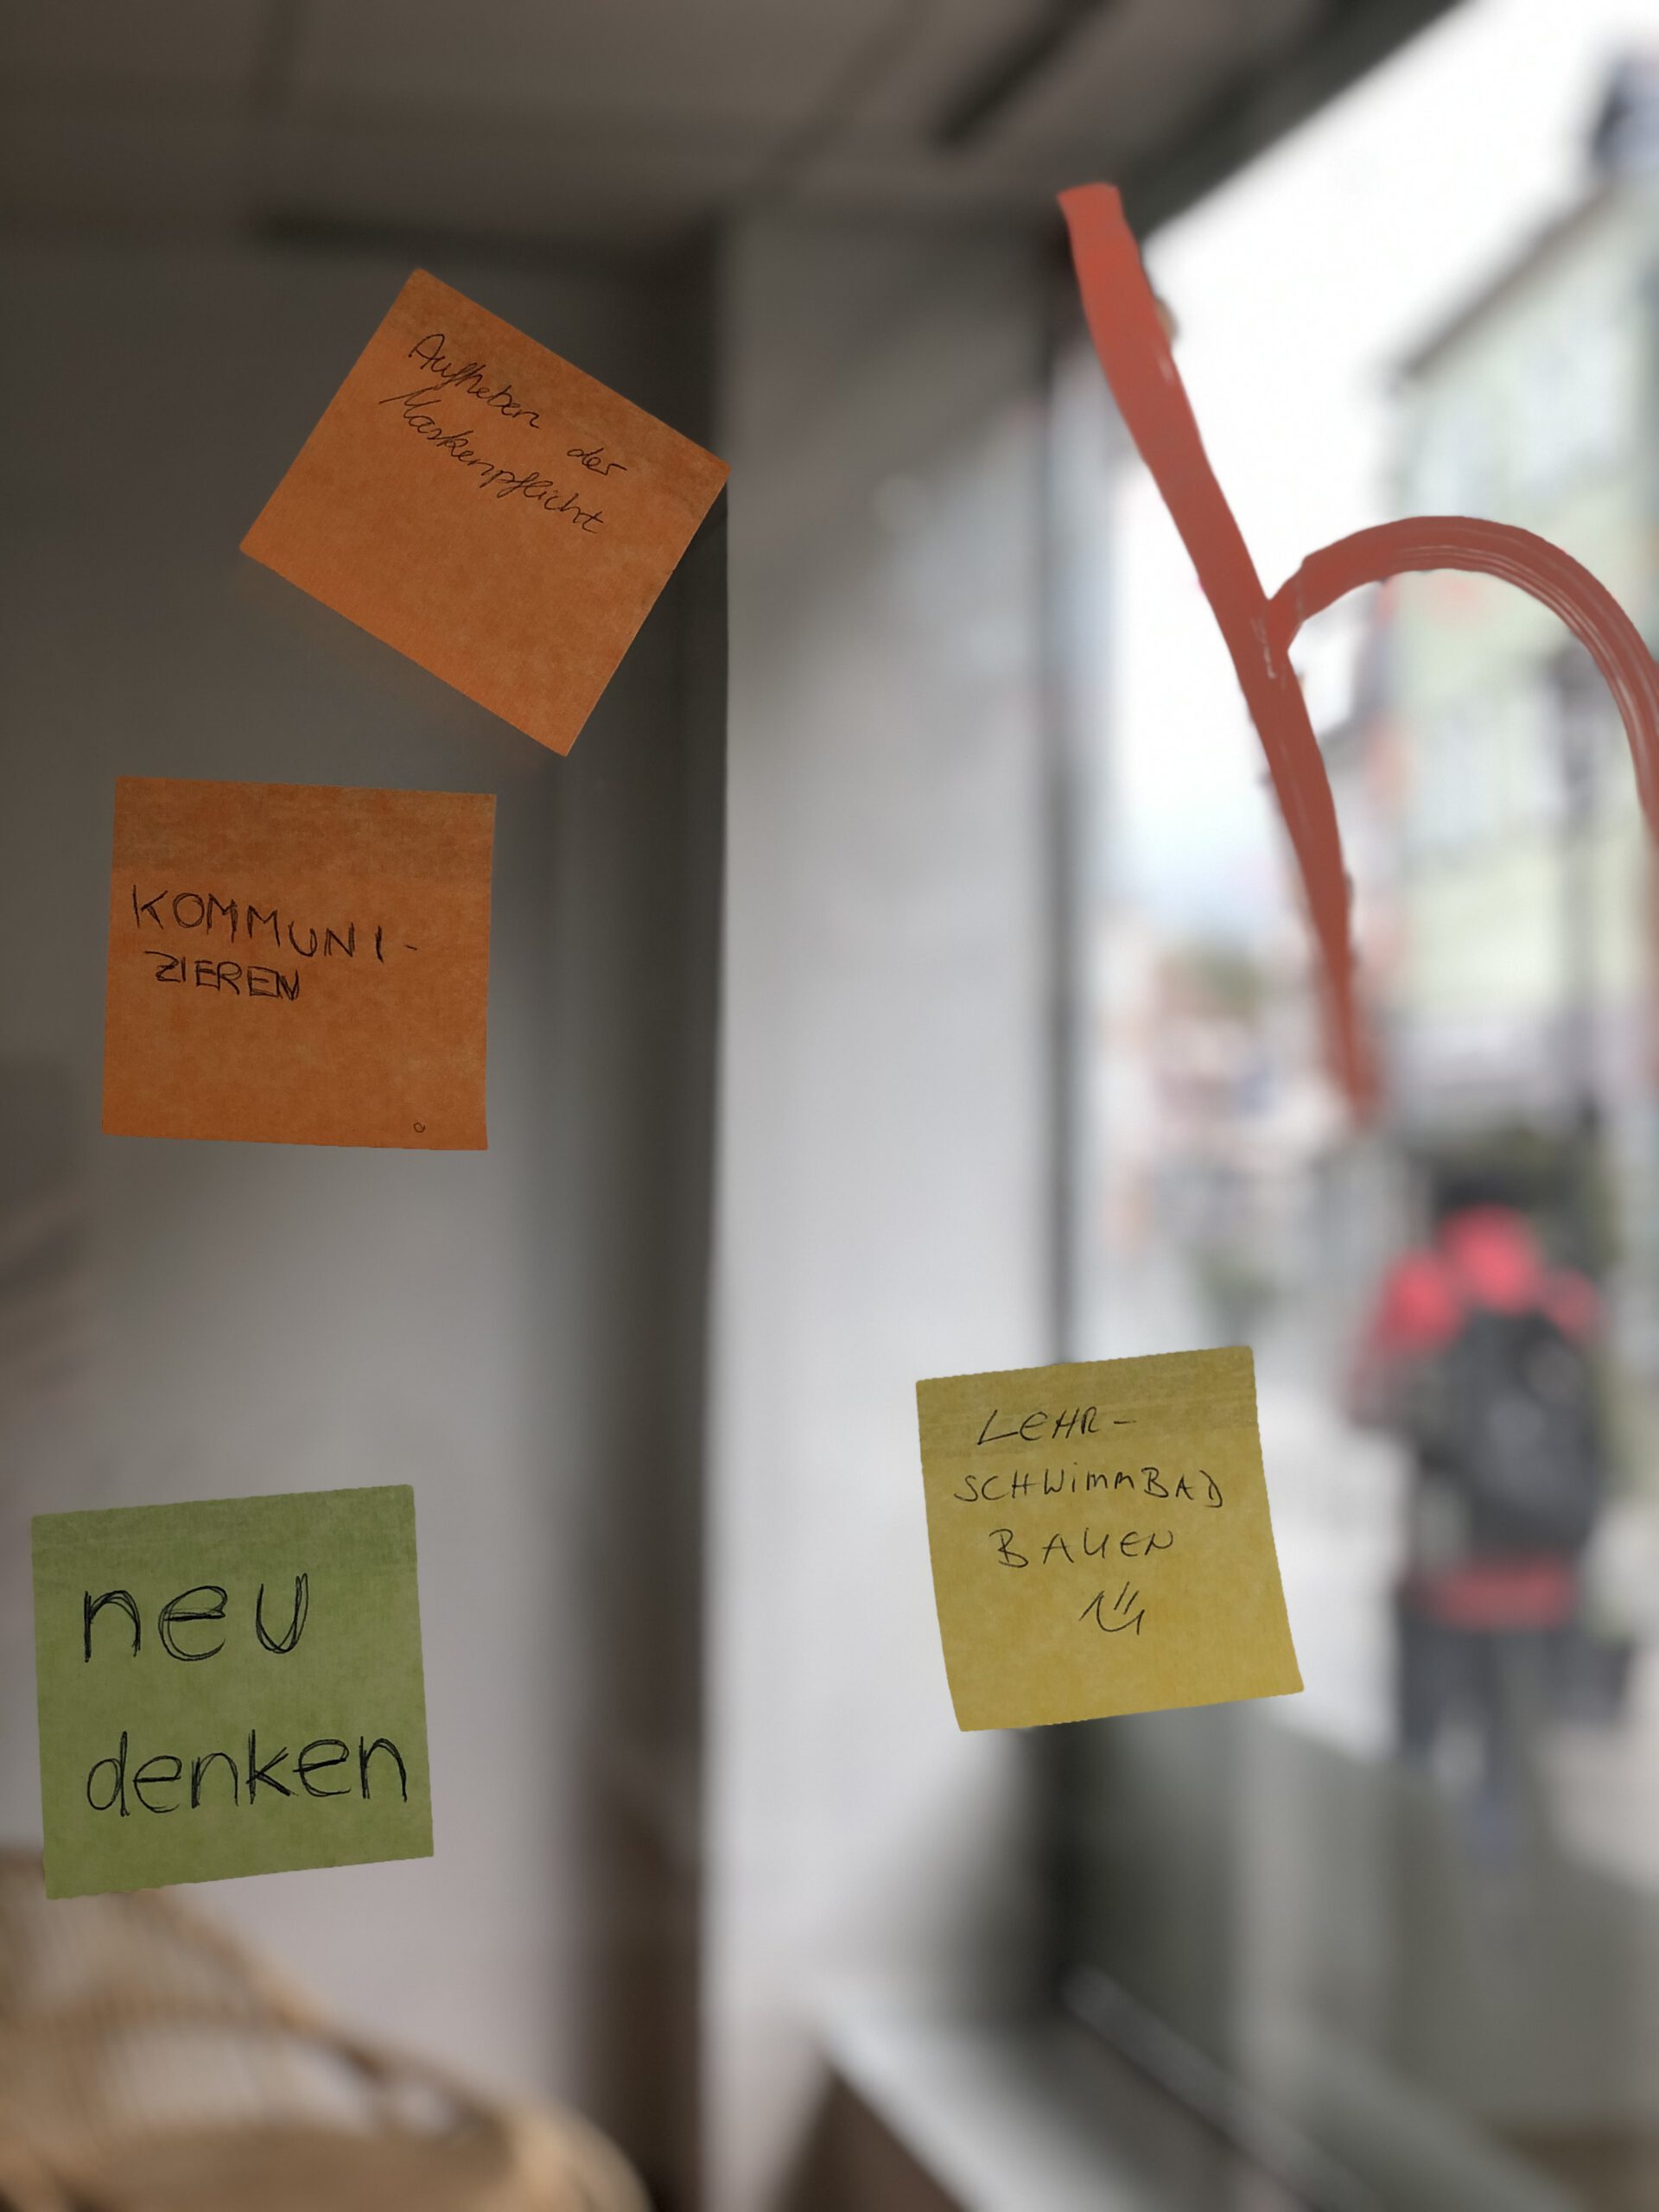 Aufheben der
Maskenpflicht
KOMMUNI-
ZIEREN
h
LEHR-
SCHWimmBAD
BAUEN
neu
denken